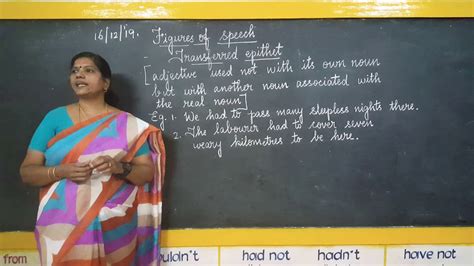 16/12/19.
Figures of speech
- Transferred epithet
[adjective used not with its own noun
but with another noun associated with
the real noun]
Eg. 1. We had to pass many sleepless nights there.
2. The labourer had to cover seven
weary kilometres to be here.
from
ouldn't had not hadn't have not